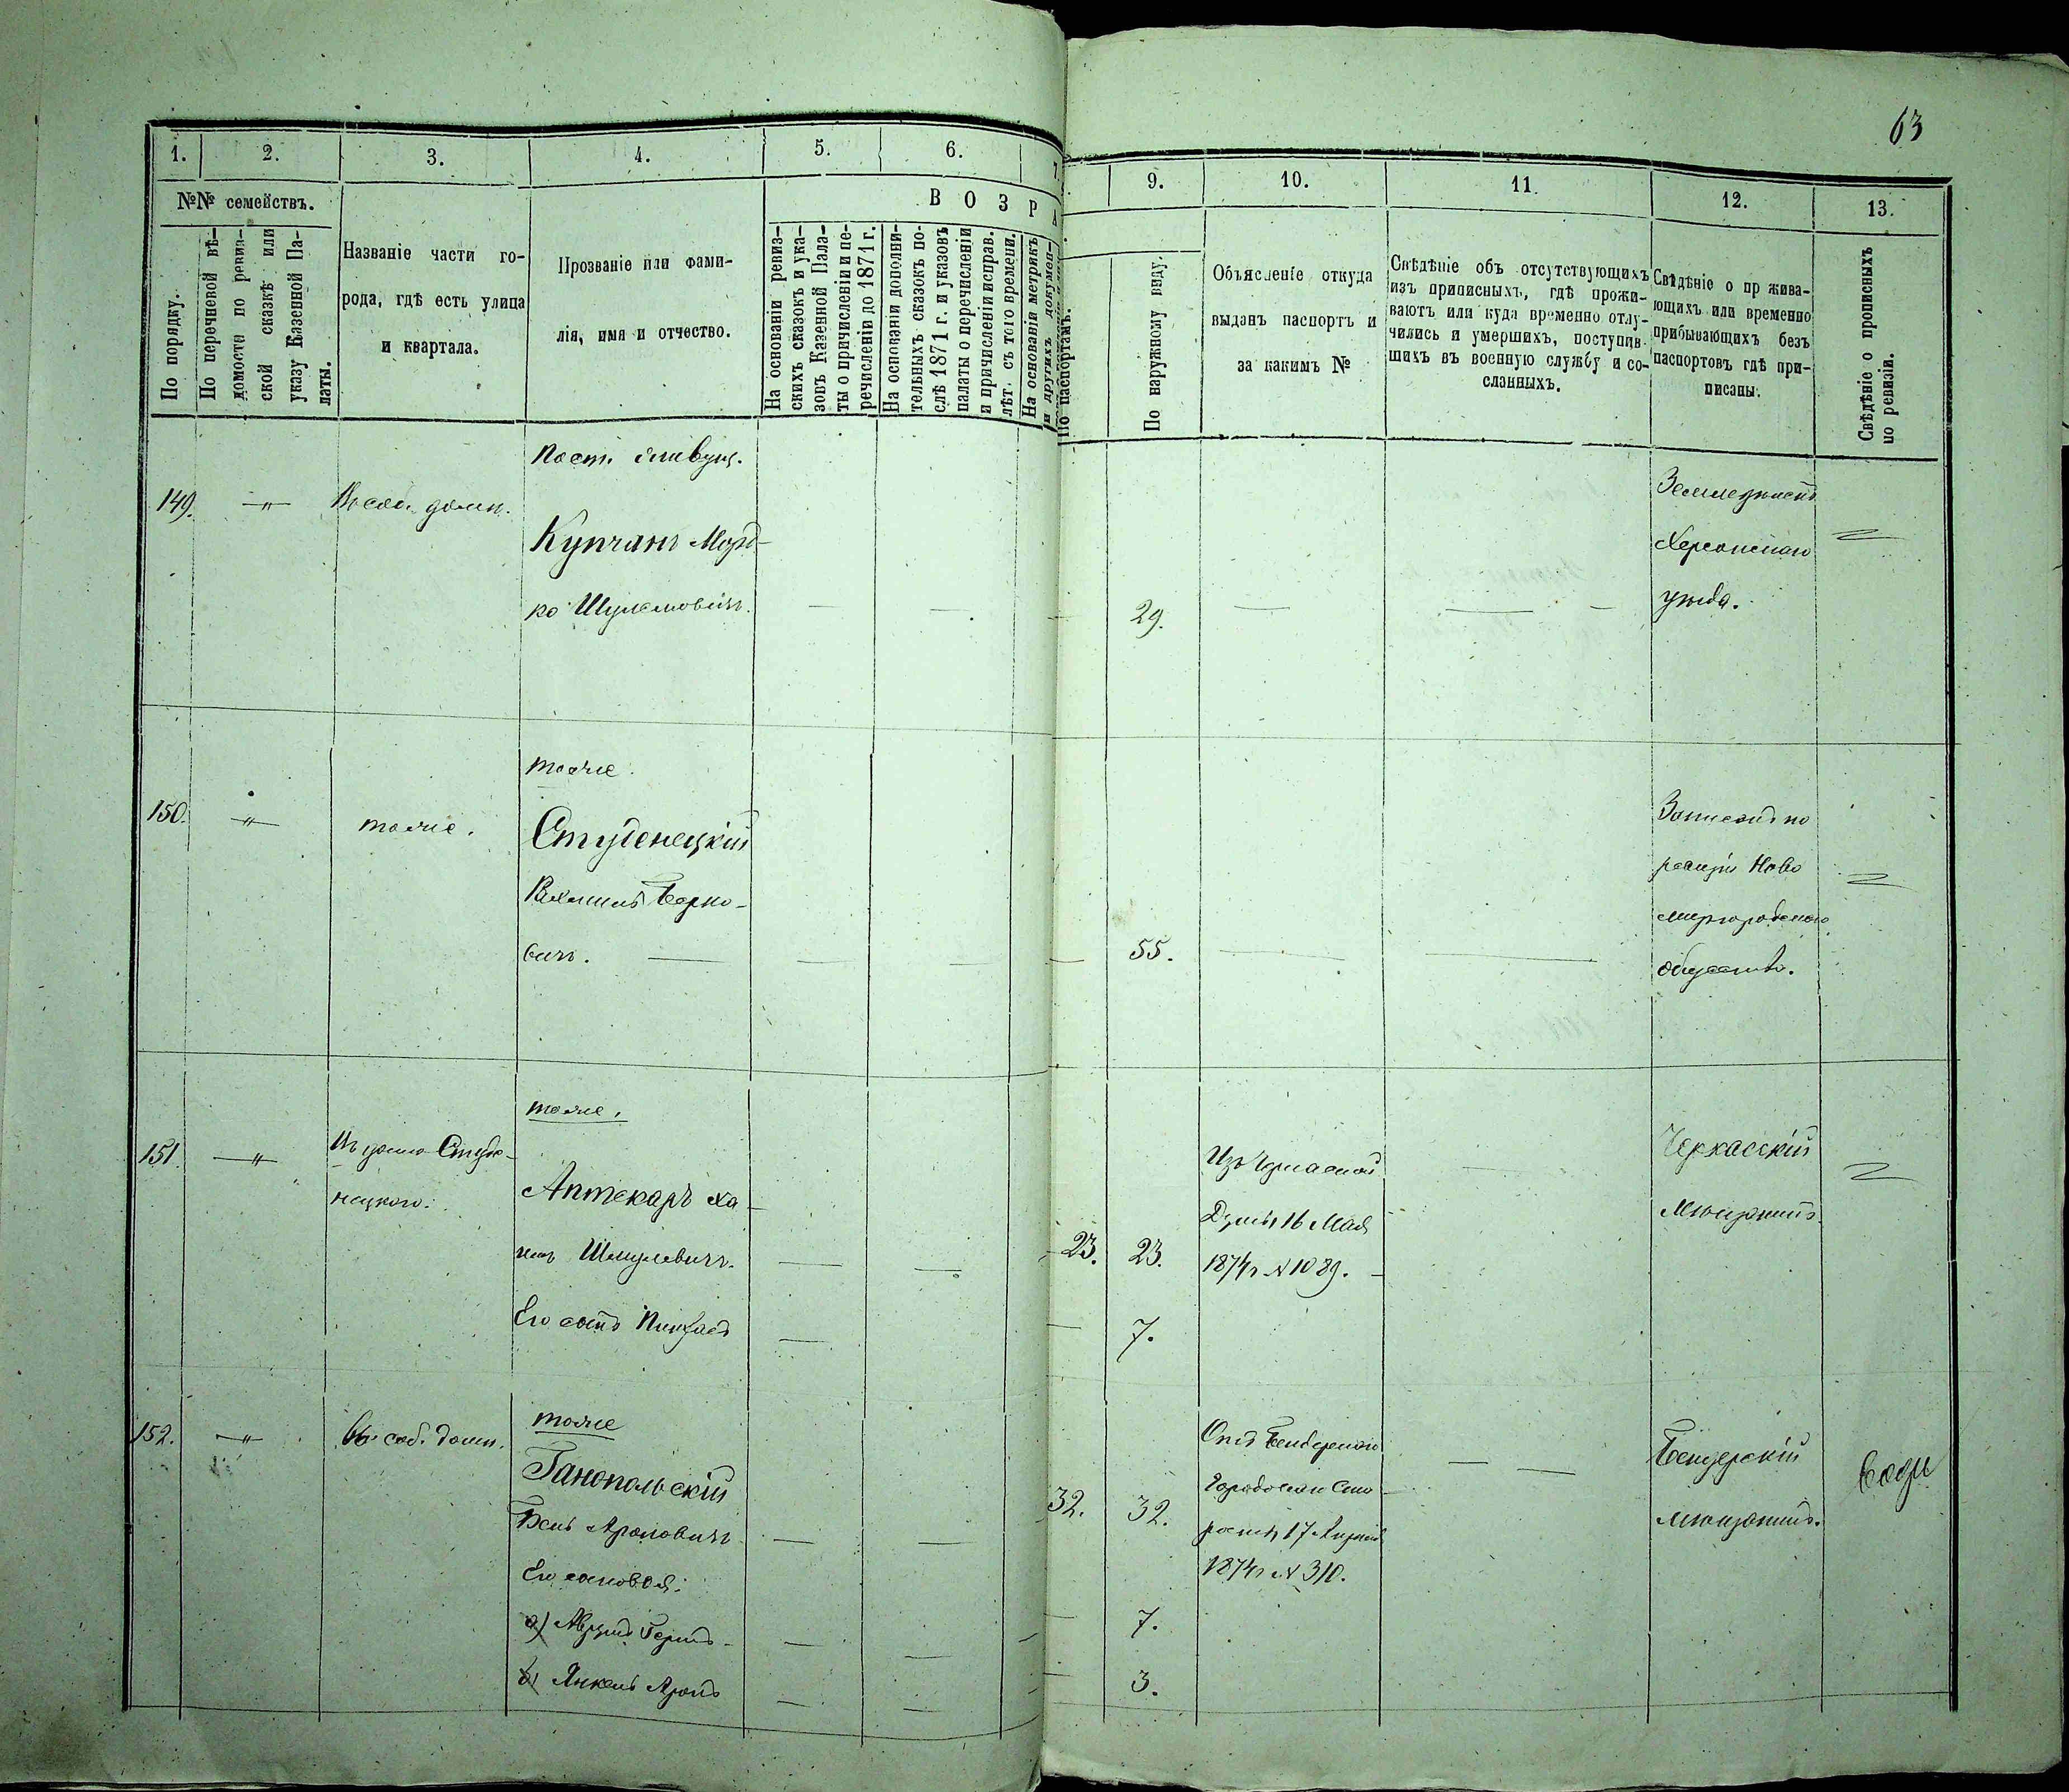 63
1. 2. 3. 4. 5. 6. 7.
9. 10. 11. 12. 13.
№№ семействъ.
По порядку.
По перечневой вѣ-
домости по ревиз-
ской сказкѣ или
указу Казенной Па-
латы.
Названіе части го-
рода, гдѣ есть улица
и квартала.
Прозваніе или фами-
лія, имя и отчество.
В О З Р А
На основаніи ревиз-
скихъ сказокъ и ука-
зовъ Казенной Пала-
ты о причисленіи и пе-
речисленіи до 1871 г.
На основаніи дополни-
тельныхъ сказокъ по-
слѣ 1871 г. и указовъ
палаты о перечисленіи
и причисленіи исправ.
лѣт. съ того времени.
На основаніи метрикъ
и другихъ докумен-
По паспортамъ.
По наружному виду.
Объясненіе откуда
выданъ паспортъ и
за какимъ №
Свѣдѣніе объ отсутствующихъ
изъ приписныхъ, гдѣ прожи-
ваютъ или куда временно отлу-
чились и умершихъ, поступив-
шихъ въ военную службу и со-
сланныхъ.
Свѣдѣніе о пр жива-
ющихъ или временно
прибывающихъ безъ
паспортовъ гдѣ при-
писаны.
Свѣдѣніе о прописныхъ
по ревизіи.
149. — " — Въ соб. домѣ.
Пост. живущ.
КупчанъМорд-
ко Шулемовичъ.
29.
Херсонскаго
уѣзда.
150. — " — тоже.
тоже.
Студенецкій
Берко-
вичъ.
55.
Записанъ по
ревизіи Ново
миргородскаго
общества.
151. — " — Въ домѣ Студе-
нецкого.
тоже.
Аптекарь Ха-
Шмулевичъ.
Его сынъ Пинхасъ
23. 23.
7.
Изъ Черкасской
Думы 16 Мая
1874 г № 1089.
Черкасскій
Мѣщанинъ.
152. — " — Въ соб. домѣ.
тоже
Ганопольскій
Бень Ароновичъ
Его сыновья:
а)
б) Янкель Аронъ
32. 32.
7.
3.
Отъ Бендерскаго
Городского Ста-
росты 17
1874 г № 310.
Бендерскій
мѣщанинъ.